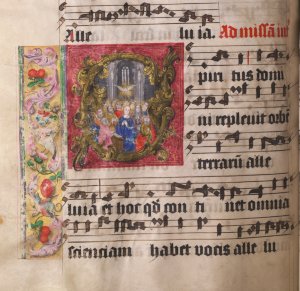 Aue lu ia. Ad missā
piri tus domi
ni repleuit orbē
terrarū alle
luia et hoc qd con ti net omnia
scienciam habet vocis alle lu